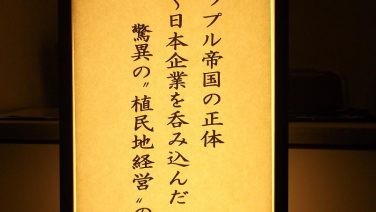 ップル帝国の正体
〜日本企業を呑み込んだ
驚異の〝植民地経営〟の